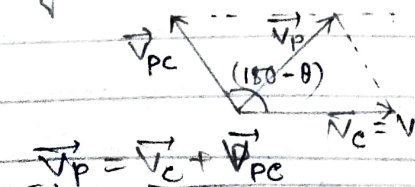 V⃗PC
V⃗P
(180-θ)
V⃗C = V
V⃗P = V⃗C + V⃗PC